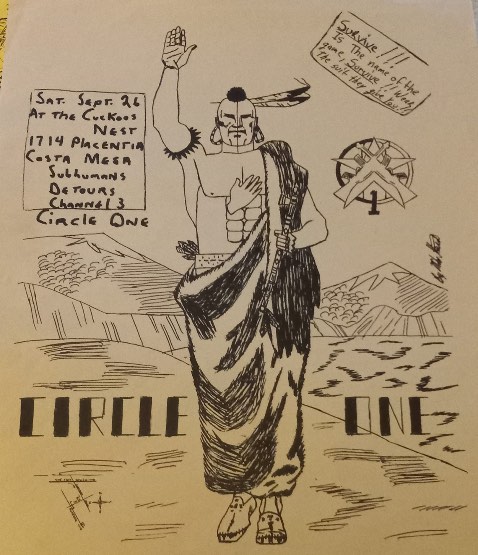 Sat. Sept. 26
At The Cuckoos
Nest
1714 Placentia
Costa Mesa
Subhumans
Detours
Channel 3
Circle One
Survive!!!
Is The name of the
game, Survive!! Wear
The suit they give
1
CIRCLE ONE